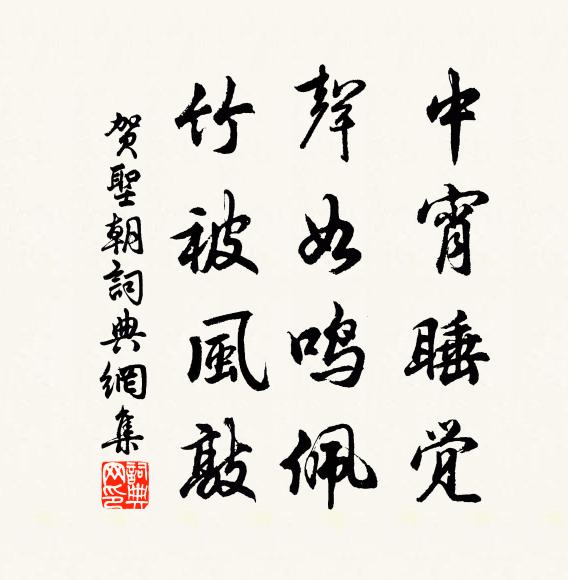 中宵睡觉
聲如鸣佩
竹被風敲
贺聖朝詞典網集
詞典网印